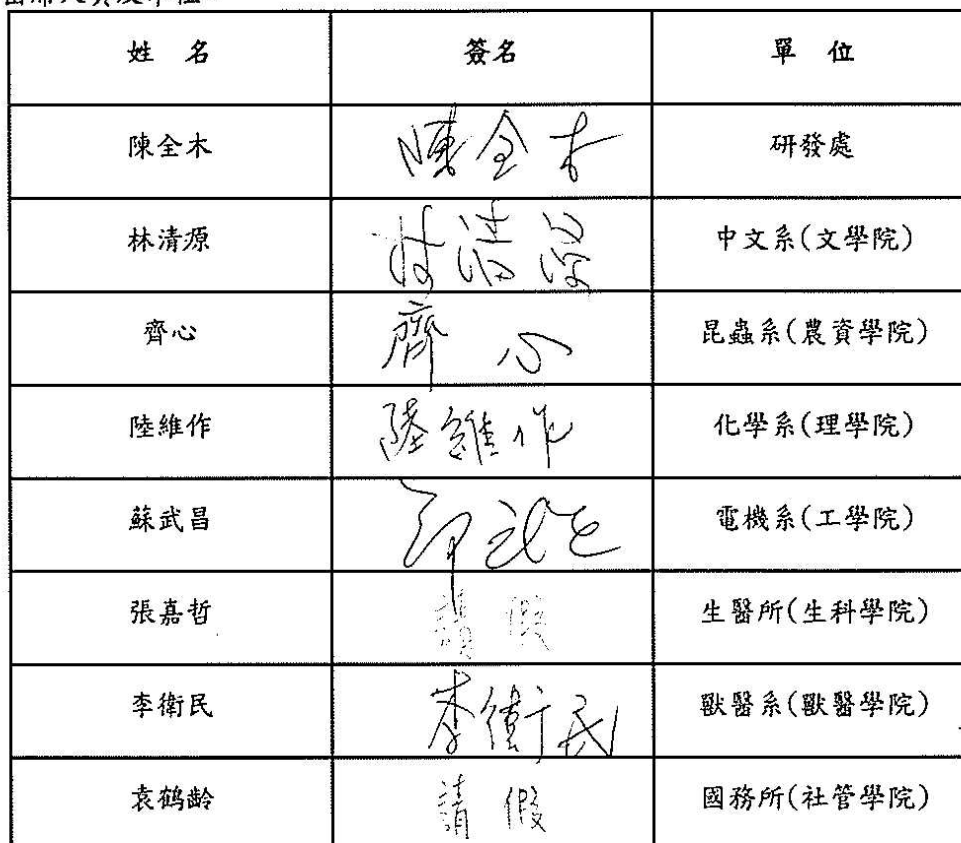 出席人員及單位
姓 名 簽名 單 位
陳全木 陳全木 研發處
林清源 林清源 中文系(文學院)
齊心 齊心 昆蟲系(農資學院)
陸維作 陸維作 化學系(理學院)
蘇武昌 電機系(工學院)
張嘉哲 請假 生醫所(生科學院)
李衛民 李衛民 獸醫系(獸醫學院)
袁鶴齡 請假 國務所(社管學院)